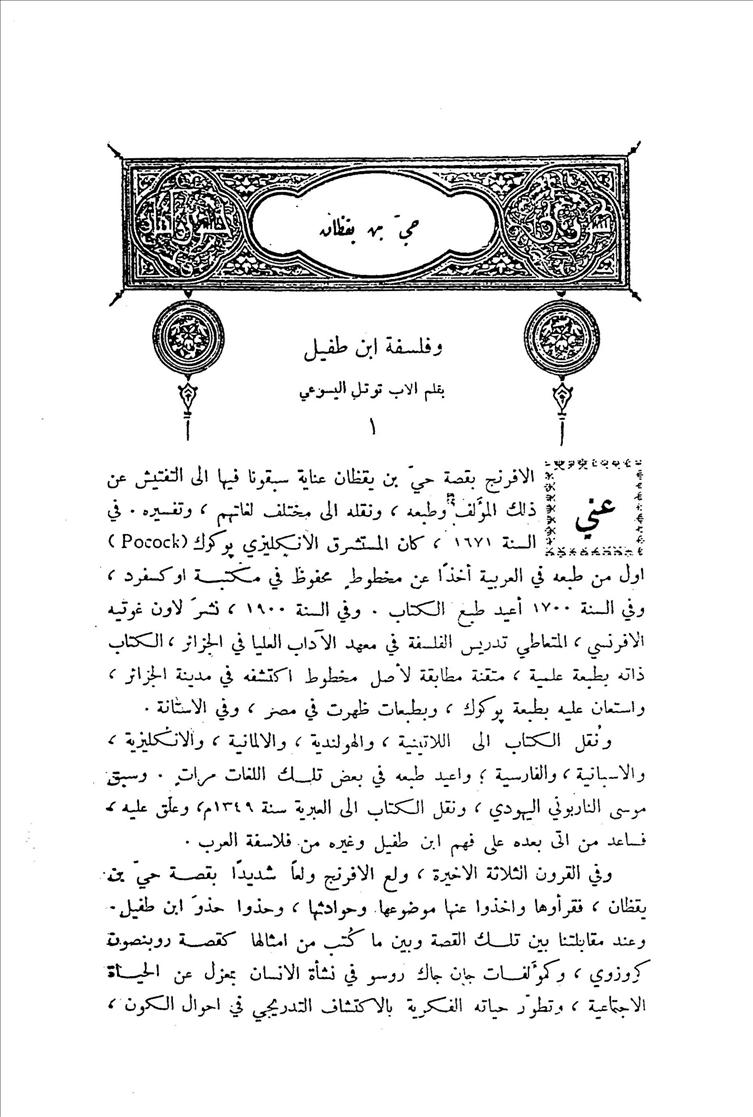 حيّ بن يقظان
وفلسفة ابن طفيل
بقلم الاب توتل اليسوعي
١
عني الافرنج بقصة حيّ بن يقظان عناية سبقونا فيها الى التفتيش عن
ذلك المؤَلف وطبعه ، ونقله الى مختلف لغاتهم ، وتفسيره . في
السنة ١٦٧١ ، كان المستشرق الانكليزي پوكوك (Pocock)
اول من طبعه في العربية أخذًا عن مخطوطٍ محفوظ في مكتبة اوكسفرد ،
وفي السنة ١٧٠٠ أُعيد طبع الكتاب . وفي السنة ١٩٠٠ ، نشرَ لاون غوتيه
الافرنسي ، المتعاطي تدريس الفلسفة في معهد الآداب العليا في الجزائر ، الكتاب
ذاته بطبعة علمية ، متقنة مطابقة لأصل مخطوط اكتشفه في مدينة الجزائر ،
واستعان عليه بطبعة پوكوك ، وبطبعات ظهرت في مصر ، وفي الاستانة .
ونُقل الكتاب الى اللاتينية ، والهولندية ، والالمانية ، والانكليزية ،
والاسبانية ، والفارسية ؛ واعيد طبعه في بعض تلك اللغات مرات . وسبق
موسى الناربوني اليهودي ، ونقل الكتاب الى العبرية سنة ١٣٤٩م ، وعلّق عليه ،
فساعد من اتى بعده على فهم ابن طفيل وغيره من فلاسفة العرب .
وفي القرون الثلاثة الاخيرة ، ولع الافرنج ولعاً شديدًا بقصة حيّ بن
يقظان ، فقرأوها واخذوا عنها موضوعها وحوادثها ، وحذوا حذوَ ابن طفيل .
وعند مقابلتنا بين تلك القصة وبين ما كُتب من امثالها كقصة روبنصون
كروزوي ، وكمؤَلفات جان جاك روسو في نشأة الانسان بمعزل عن الحياة
الاجتماعية ، وتطوّر حياته الفكرية بالاكتشاف التدريجي في احوال الكون ،